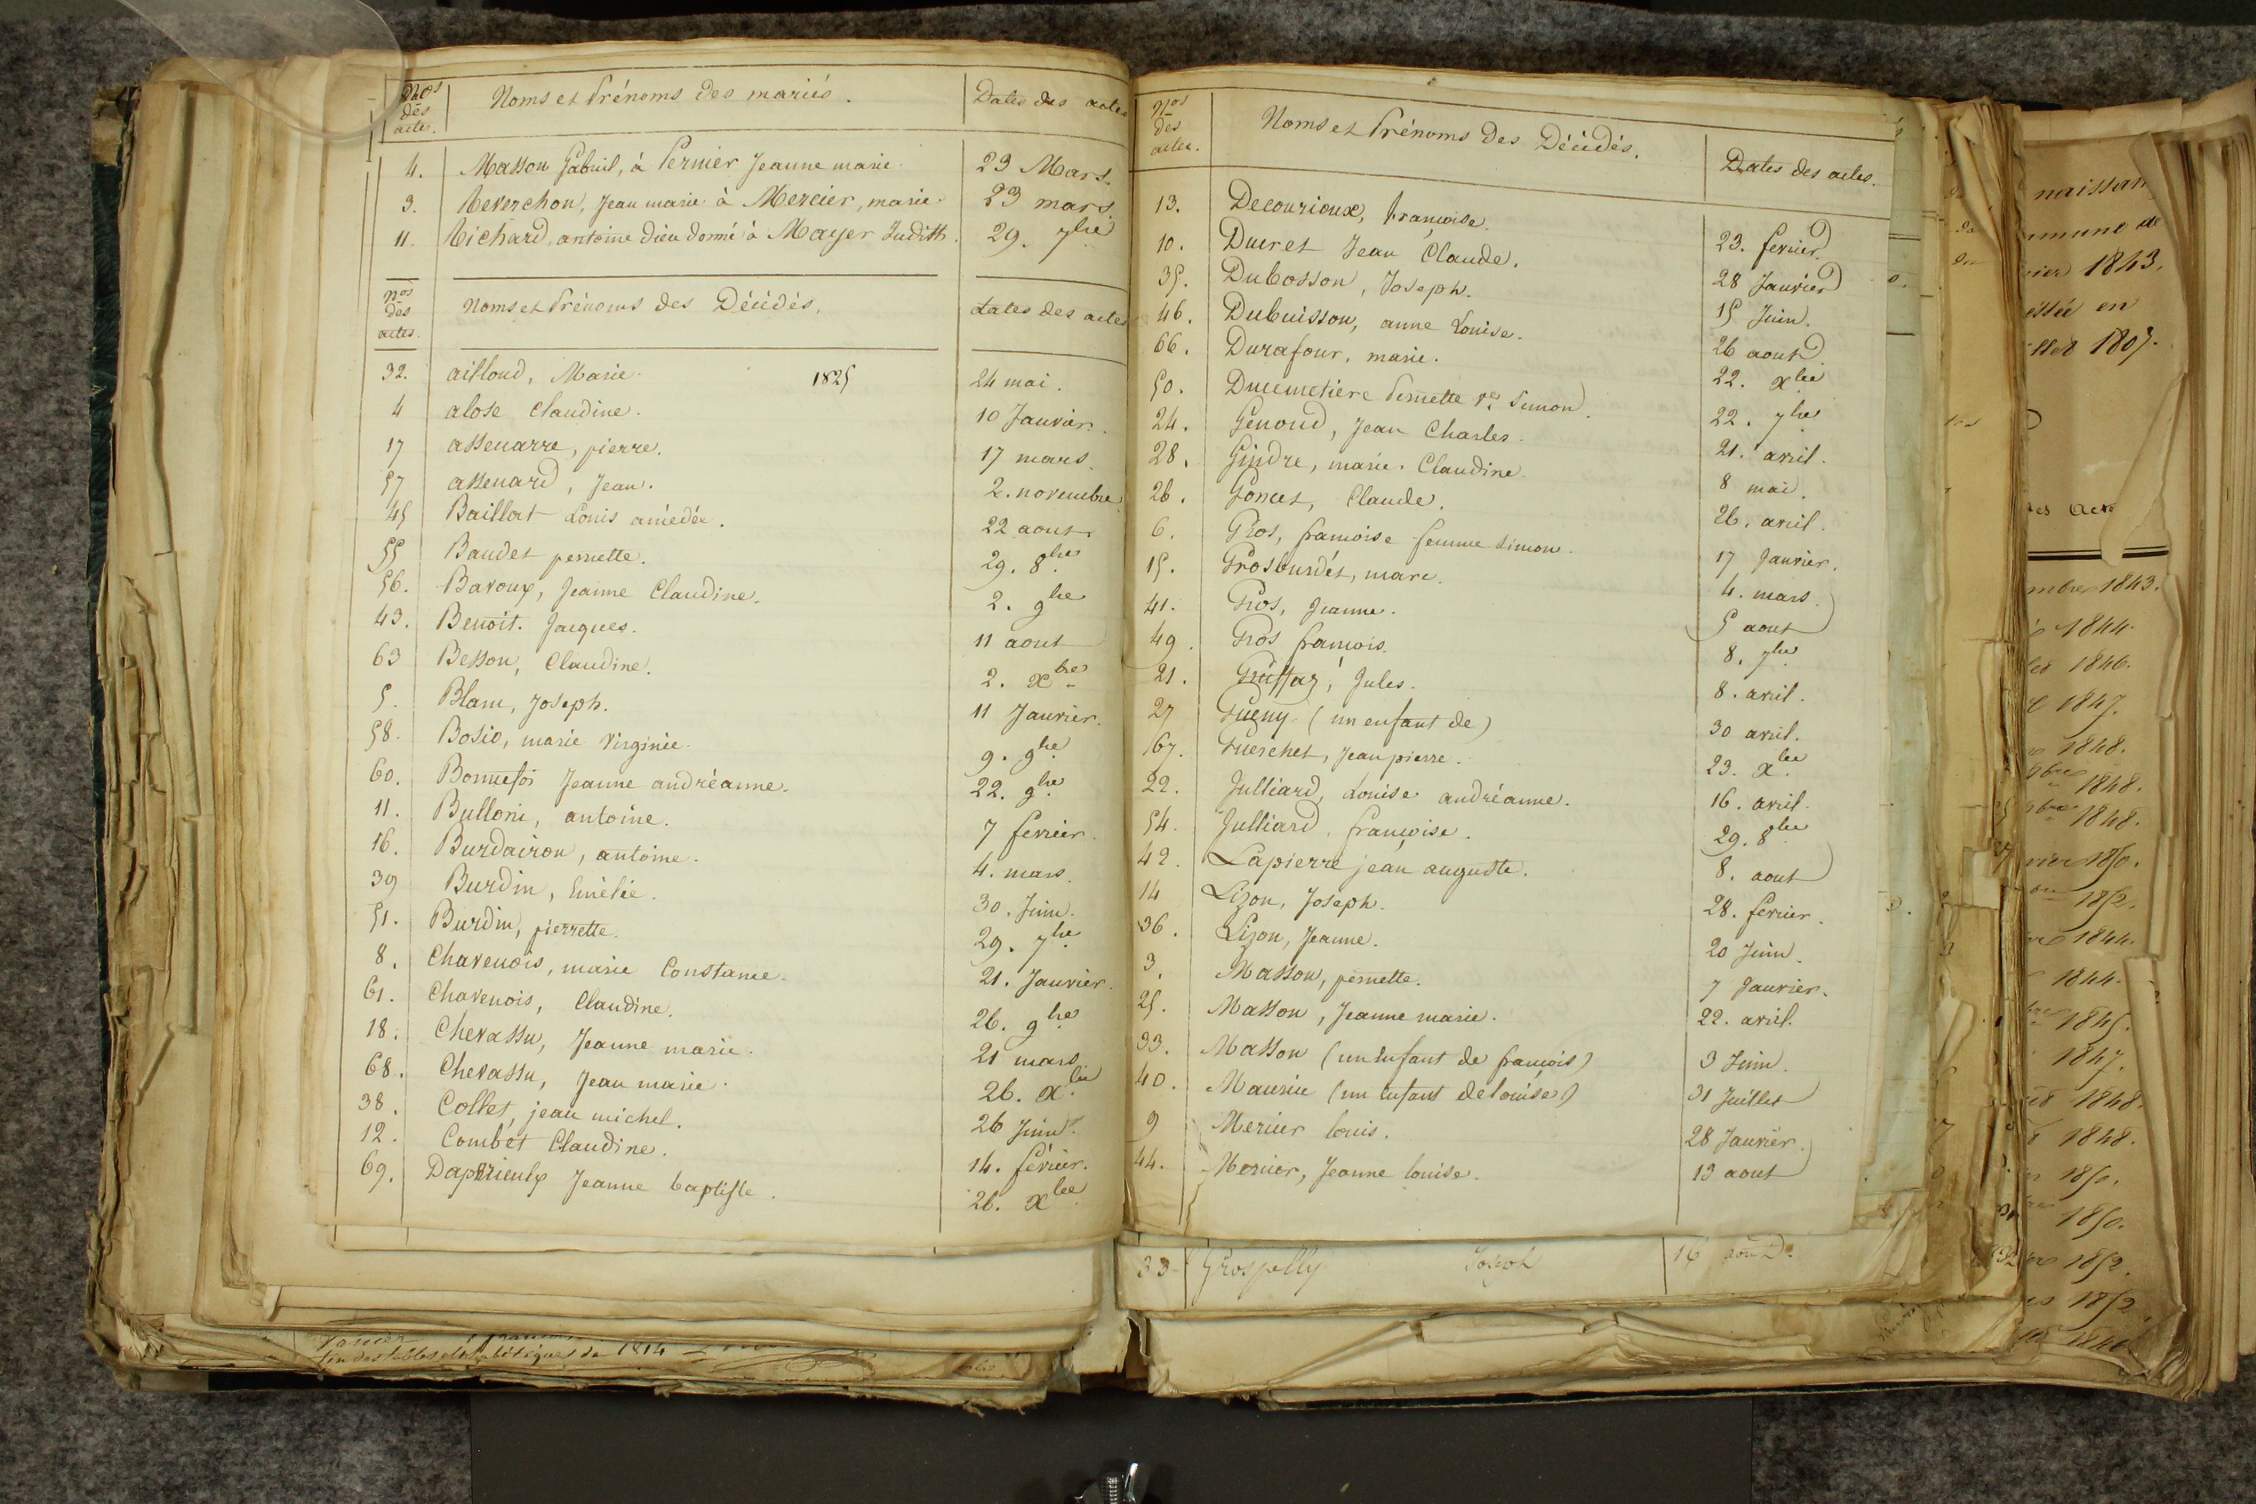 Nos des actes. | Noms et Prénoms des mariés. | Dates des actes
4. Masson Gabriel, à Pernier Jeanne marie. 23 Mars.
3. Reverchon, Jean marie à Mercier, marie. 23 mars.
11. Richard, antoine dieu donné à Mayer Judith. 29. 7bre
nos des actes. | Noms et Prénoms des Décédés. | dates des actes
32. ailloud, Marie. 1825 24 mai.
4 alose Claudine. 10 Janvier.
17 assenarre, pierre. 17 mars.
57 assenard, Jean. 2. novembre
45 Baillat Louis amédée. 22 aout
55 Baudet pernette. 29. 8bre
56. Baroux, Jeanne Claudine. 2. 9bre
43. Benoit. Jacques. 11 aout
63 Besson, Claudine. 2. xbre
5. Blanc, Joseph. 11 Janvier.
58. Bosio, marie Virginie. 9. 9bre
60. Bonnefoi Jeanne andréanne. 22. 9bre
11. Bulloni, antoine. 7 fevrier.
16. Burdairon, antoine. 4. mars.
39 Burdin, Emélie. 30. Juin.
51. Burdin, pierrette. 29. 7bre
8. Chavenois, marie Constance. 21. Janvier.
61. Chavenois, Claudine. 26. 9bre
18. Chevassu, Jeanne marie. 21 mars
68. Chevassu, Jean marie. 26. xbre
38. Collet, jean michel. 26 Juin.
12. Combet Claudine. 14. février.
69. Jeanne baptiste. 26. xbre
Nos des actes. | Noms et Prénoms Des Décédés. | Dates des actes.
13. Decourioux, françoise. 23. fevrier.
10. Ducret Jean Claude. 28 Janvier
35. Dubosson, Joseph. 15 Juin.
46. Dubuisson, anne Louise. 26 aout.
66. Durafour, marie. 22. xbre
50. Ducimetiere Pernette ve Simon. 22. 7bre
24. Genoud, Jean Charles. 21. avril.
28. Gindre, marie. Claudine. 8 mai.
26. Poncet, Claude. 26. avril.
6. Gros, françoise femme Simon. 17 Janvier.
15. Grosburdet, marc. 4. mars.
41. Gros, Jeanne. 5 aout
49. Gros françois. 8. 7bre
21. Gruffaz, Jules. 8. avril.
27 Gueny (un enfant de) 30 avril.
67. Guerchet, Jean pierre. 23. xbre
22. Julliard, Louise andréanne. 16. avril.
54. Julliard, françoise. 29. 8bre
42. Lapierre jean auguste. 8. aout
14 Lizon, Joseph. 28. fevrier.
36. Lizon, Jeanne. 20 Juin.
3. Masson, pernette. 7 Janvier.
25. Masson, Jeanne marie. 22. avril.
33. Masson (un enfant de françois) 3 Juin.
40. Maurice (un enfant de louise) 31 Juillet
9 Mercier louis. 28 Janvier.
44. Mercier, Jeanne louise. 13 aout
33 Grospelly Joseph 16
fin des tables de 1814
naissan
1843.
en
1807.
1843.
1844.
1846.
1847.
1848.
1848.
1848.
1850.
1852.
1844.
1844.
1845.
1847.
1848.
1848.
1850.
1850.
1852.
1852